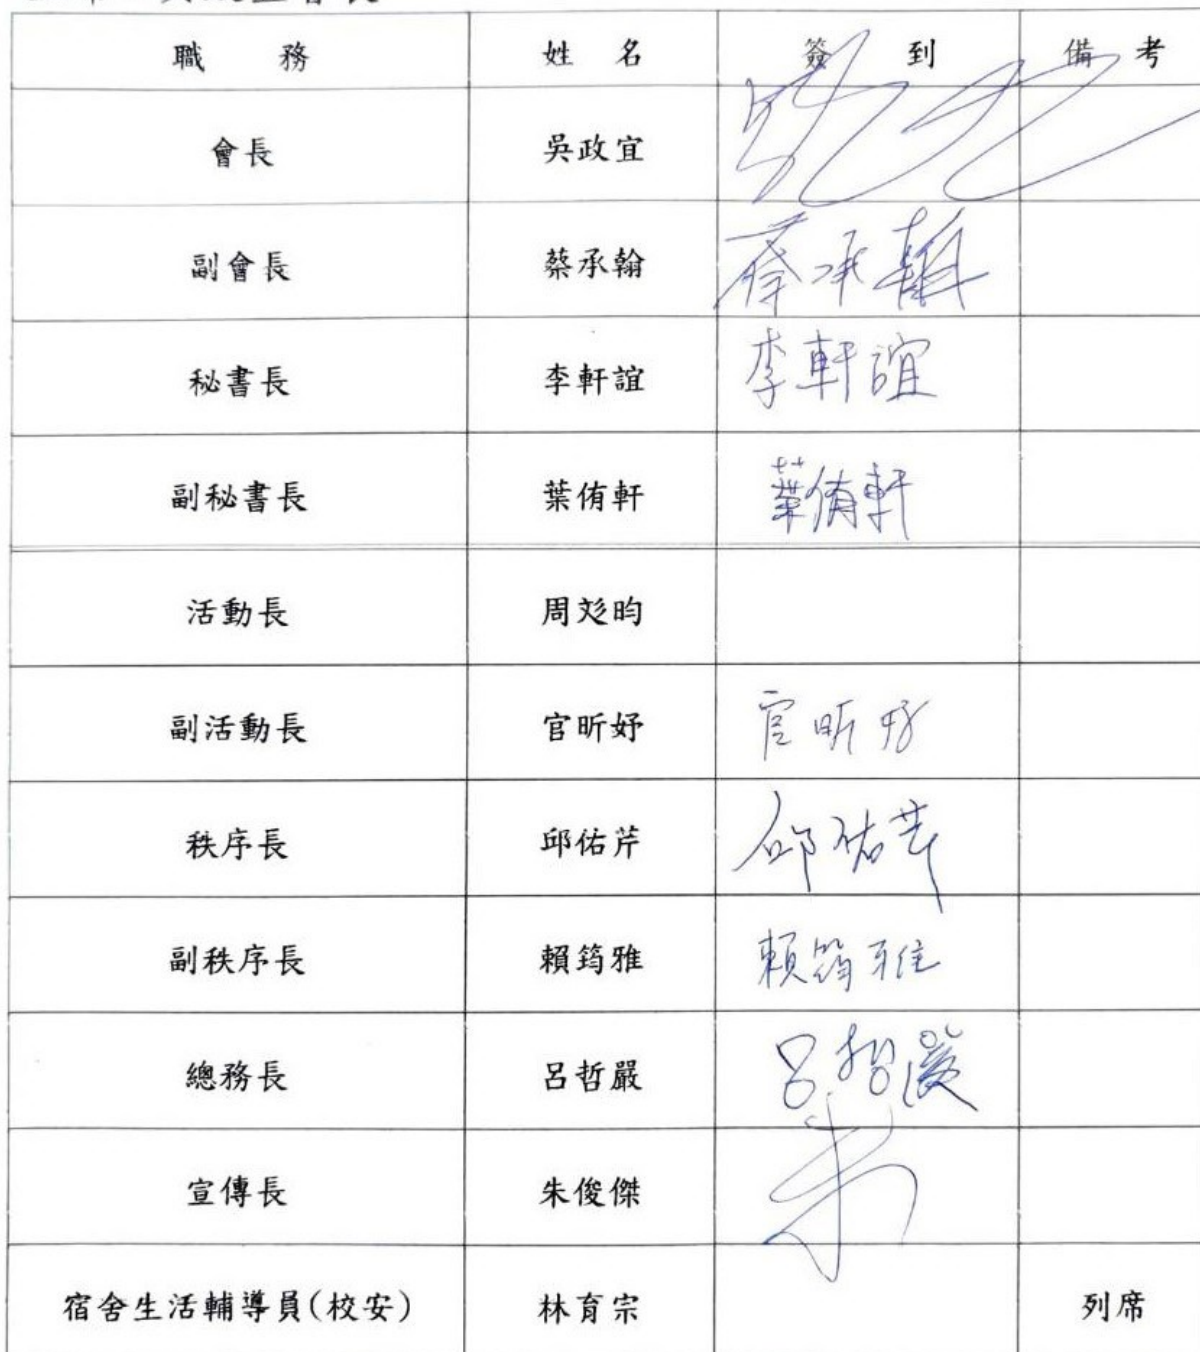 職 務 姓 名 簽 到 備 考
會長 吳政宜
副會長 蔡承翰 蔡承翰
秘書長 李軒誼 李軒誼
副秘書長 葉侑軒 葉侑軒
活動長 周彣昀
副活動長 官昕妤 官昕妤
秩序長 邱佑芹 邱佑芹
副秩序長 賴筠雅 賴筠雅
總務長 呂哲嚴 呂哲嚴
宣傳長 朱俊傑 朱
宿舍生活輔導員(校安) 林育宗 列席